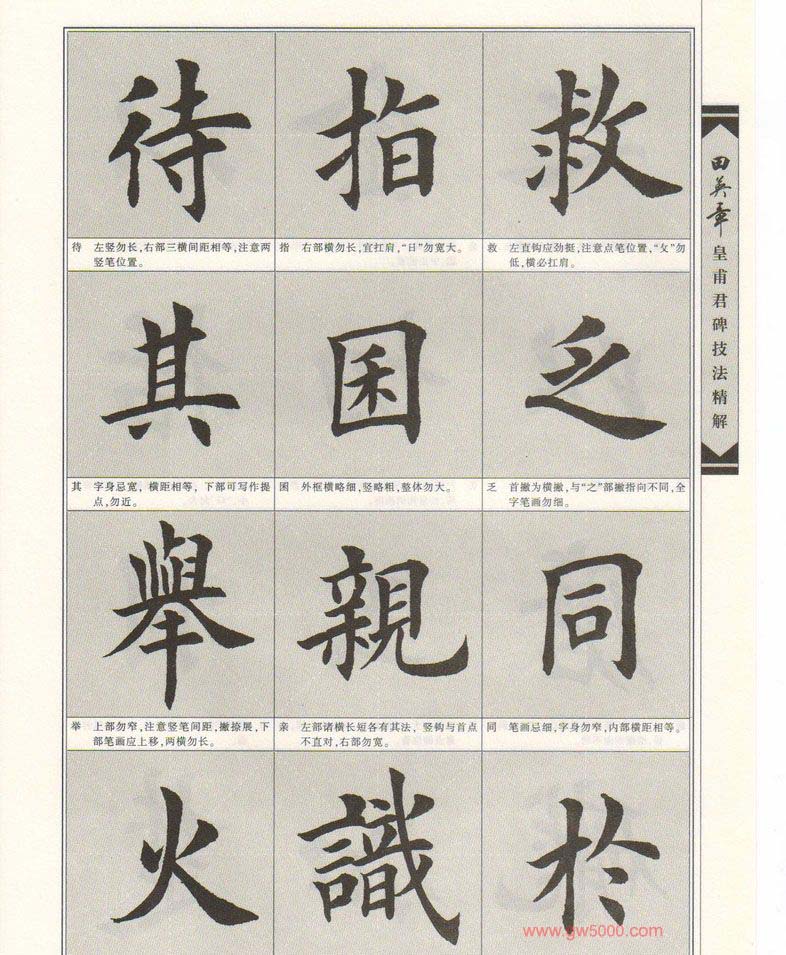 待 指 救
待 左竖勿长，右部三横间距相等，注意两
竖笔位置。
指 右部横勿长，宜扛肩，“日”勿宽大。
救 左直钩应劲挺，注意点笔位置，“攵”勿
低，横必扛肩。
其 囷 乏
其 字身忌宽，横距相等，下部可写作提
点，勿近。
囷 外框横略细，竖略粗，整体勿大。
乏 首撇为横撇，与“之”部撇指向不同，全
字笔画勿细。
舉 親 同
举 上部勿窄，注意竖笔间距，撇捺展，下
部笔画应上移，两横勿长。
亲 左部诸横长短各有其法，竖钩与首点
不直对，右部勿宽。
同 笔画忌细，字身勿窄，内部横距相等。
火 識 於
田英章 皇甫君碑技法精解
www.gw5000.com